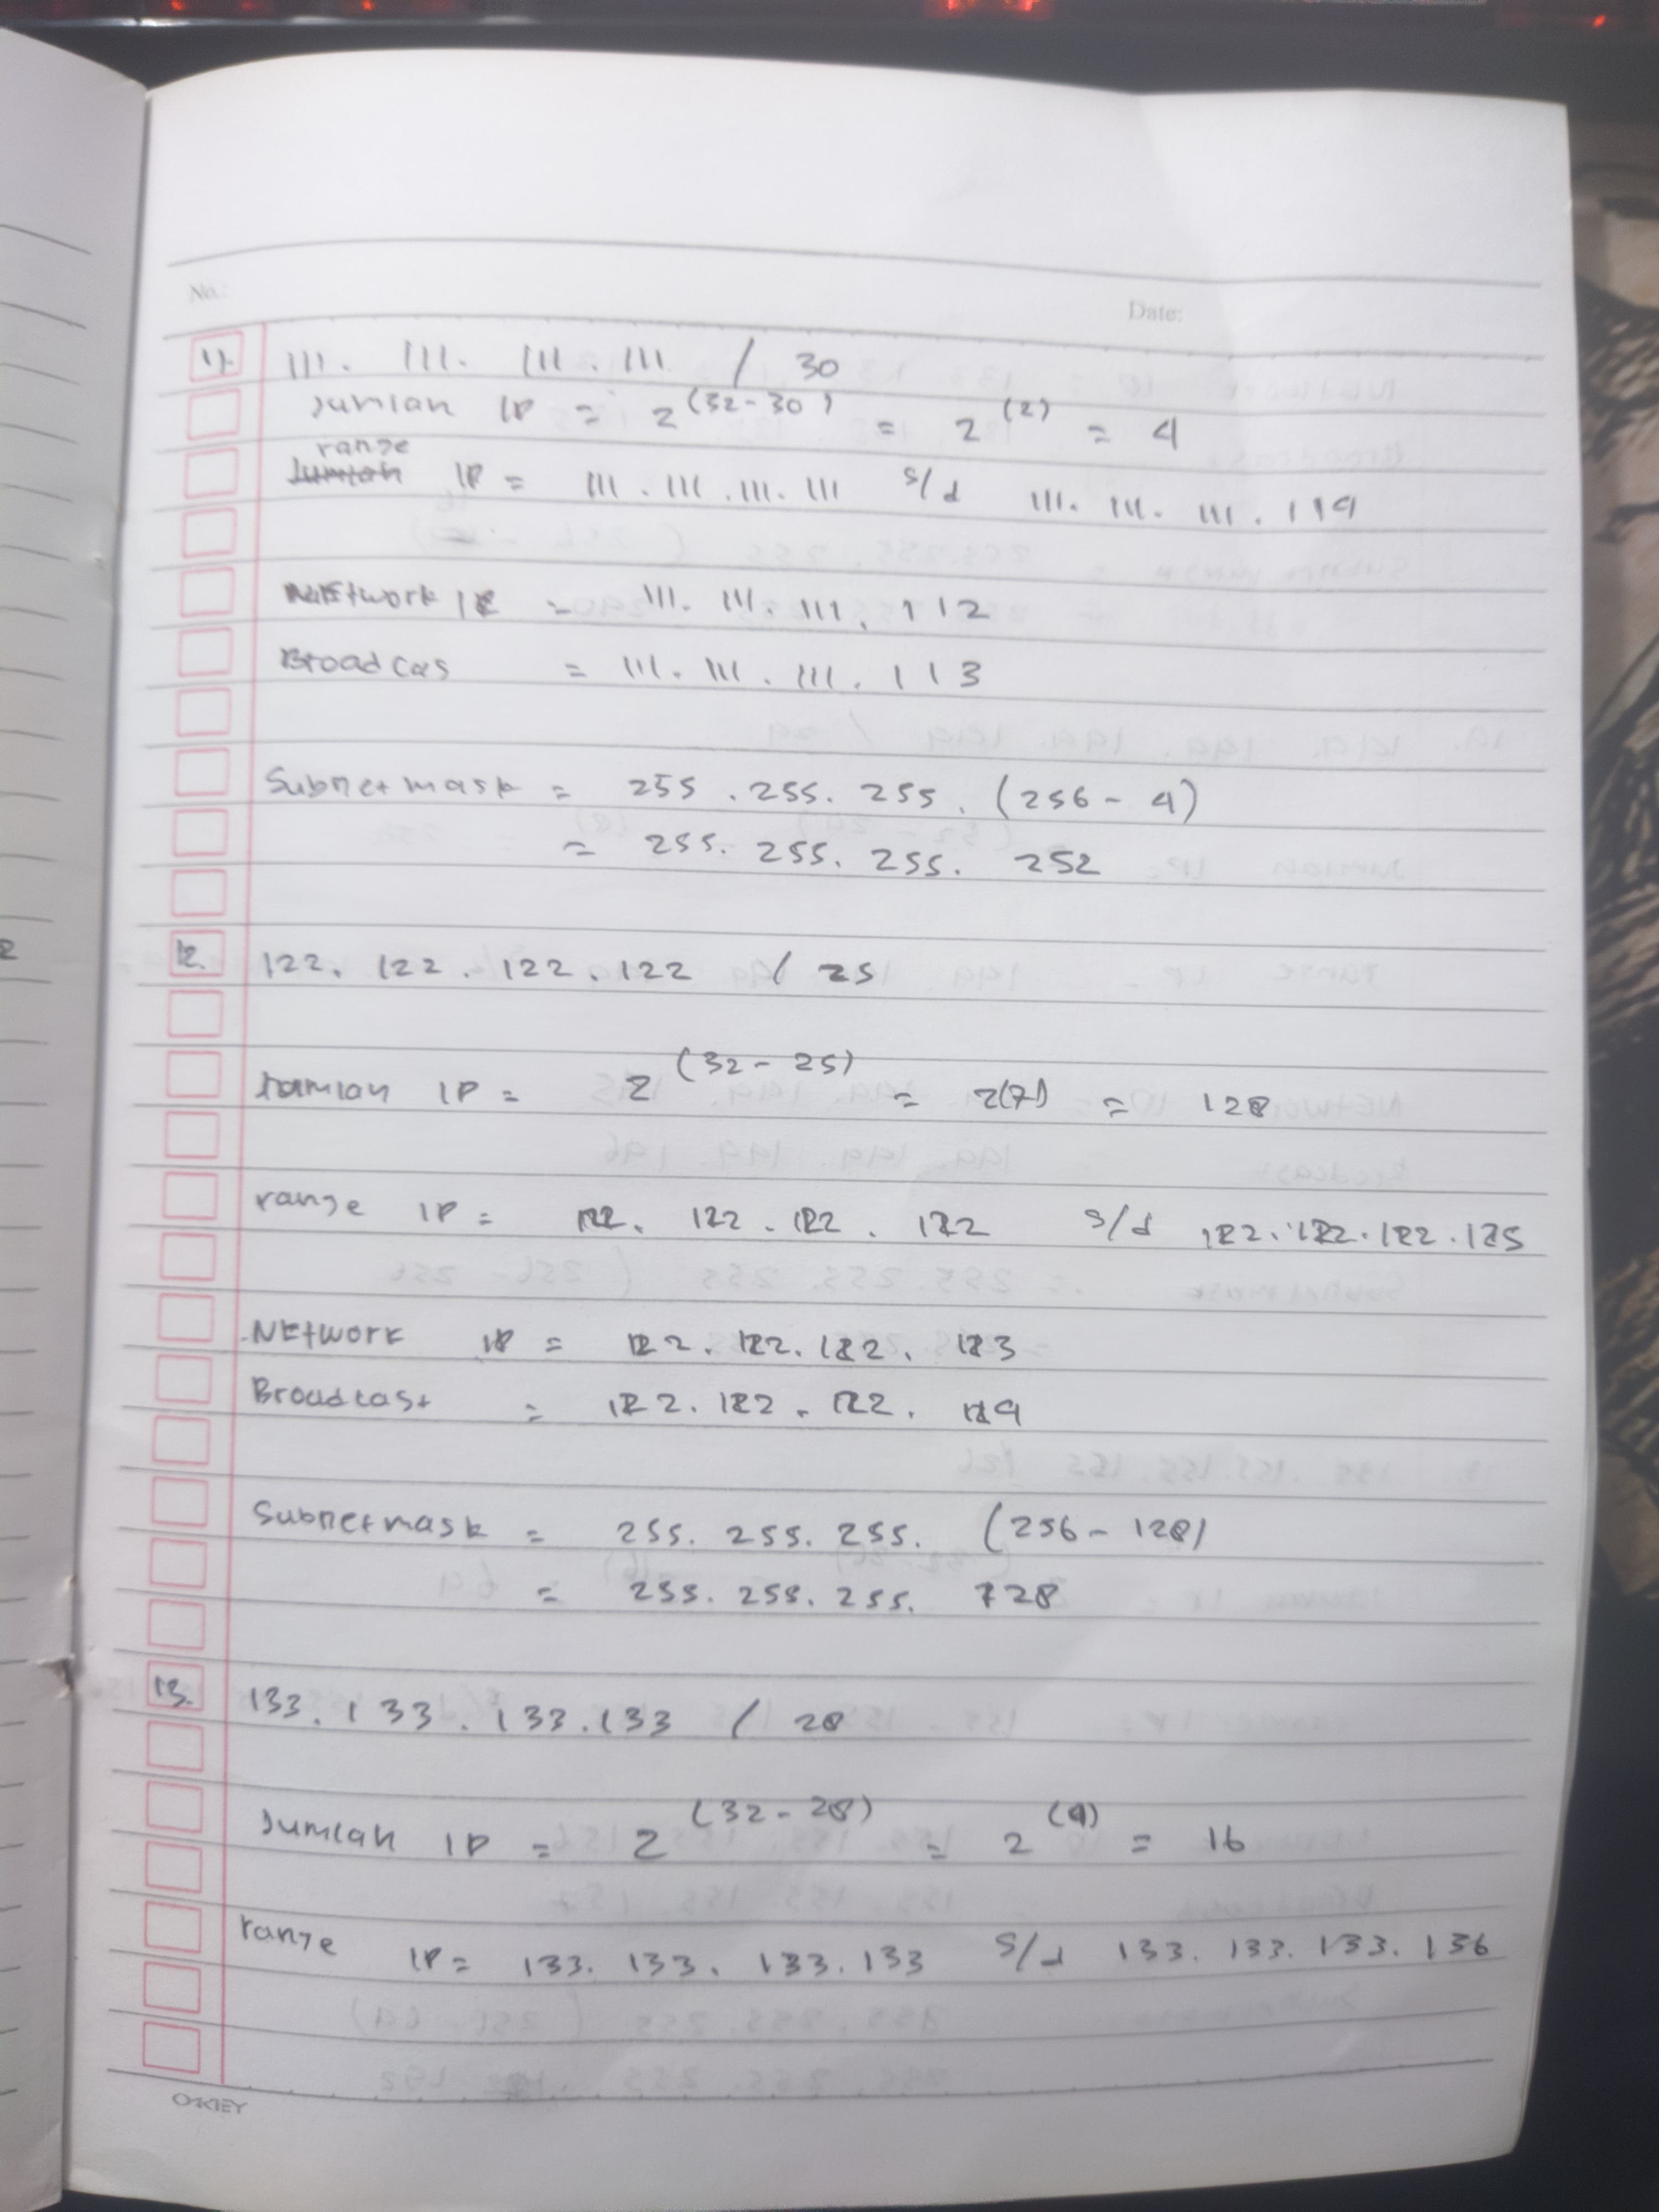 No.:
Date:
11. 111. 111. 111. 111 / 30
Jumlah IP = 2 (32-30) = 2 (2) = 4
range
Jumlah IP = 111.111.111.111 s/d 111.111.111.114
Network IP = 111.111.111.112
Broadcas = 111.111.111.113
Subnetmask = 255.255.255.(256-4)
= 255.255.255.252
12. 122.122.122.122 / 25
Jumlah IP = 2 (32-25) = 2(7) = 128
range IP = 122.122.122.122 s/d 122.122.122.125
NEtwork IP = 122.122.122.123
Broadcast = 122.122.122.124
Subnetmask = 255.255.255.(256-128)
= 255.255.255.128
13. 133.133.133.133 / 28
Jumlah IP = 2 (32-28) = 2 (4) = 16
range IP = 133.133.133.133 s/d 133.133.133.136
OKEY